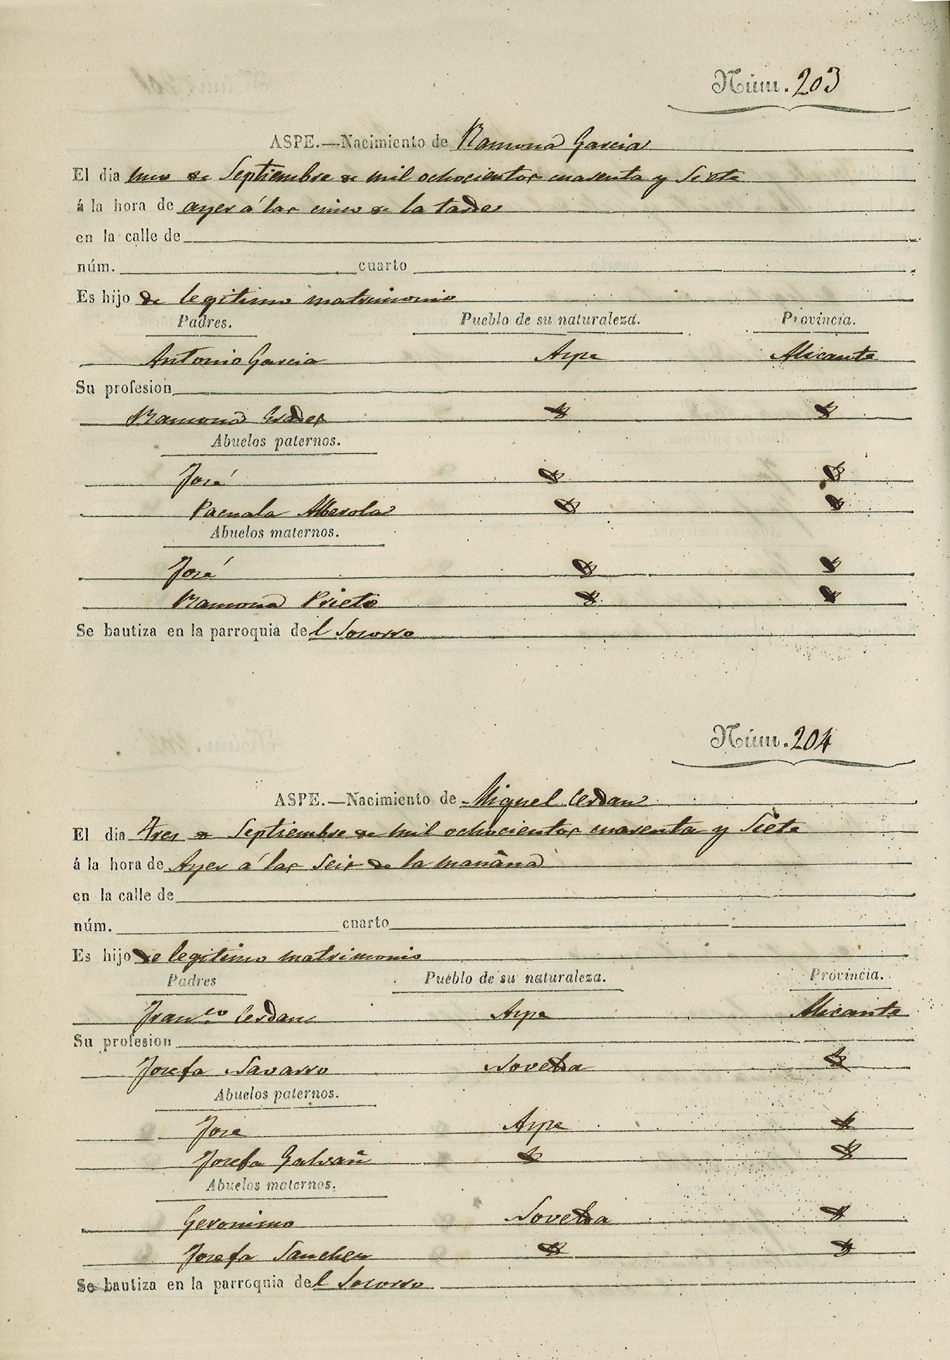 Núm. 203
ASPE.—Nacimiento de Ramona Garcia
El dia de Septiembre de mil ochocientos cuarenta y Siete
á la hora de ayer á las cinco de la tarde
en la calle de
núm. cuarto
Es hijo de legitimo matrimonio
Padres. Pueblo de su naturaleza. Provincia.
Antonio Garcia Aspe Alicante
Su profesion
Ramona
Abuelos paternos.
José
Pascuala Alberola
Abuelos maternos.
José
Ramona Prieto
Se bautiza en la parroquia del Socorro
Núm. 204
ASPE.—Nacimiento de Miguel Cerdan
El dia tres de Septiembre de mil ochocientos cuarenta y Siete
á la hora de Ayer á las Seis de la mañana
en la calle de
núm. cuarto
Es hijo de legitimo matrimonio
Padres Pueblo de su naturaleza. Provincia.
Franco Cerdan Aspe Alicante
Su profesion
Josefa Navarro Novelda
Abuelos paternos.
Jose Aspe
Josefa Galvañ
Abuelos maternos.
Geronimo Novelda
Josefa Sanchez
Se bautiza en la parroquia del Socorro